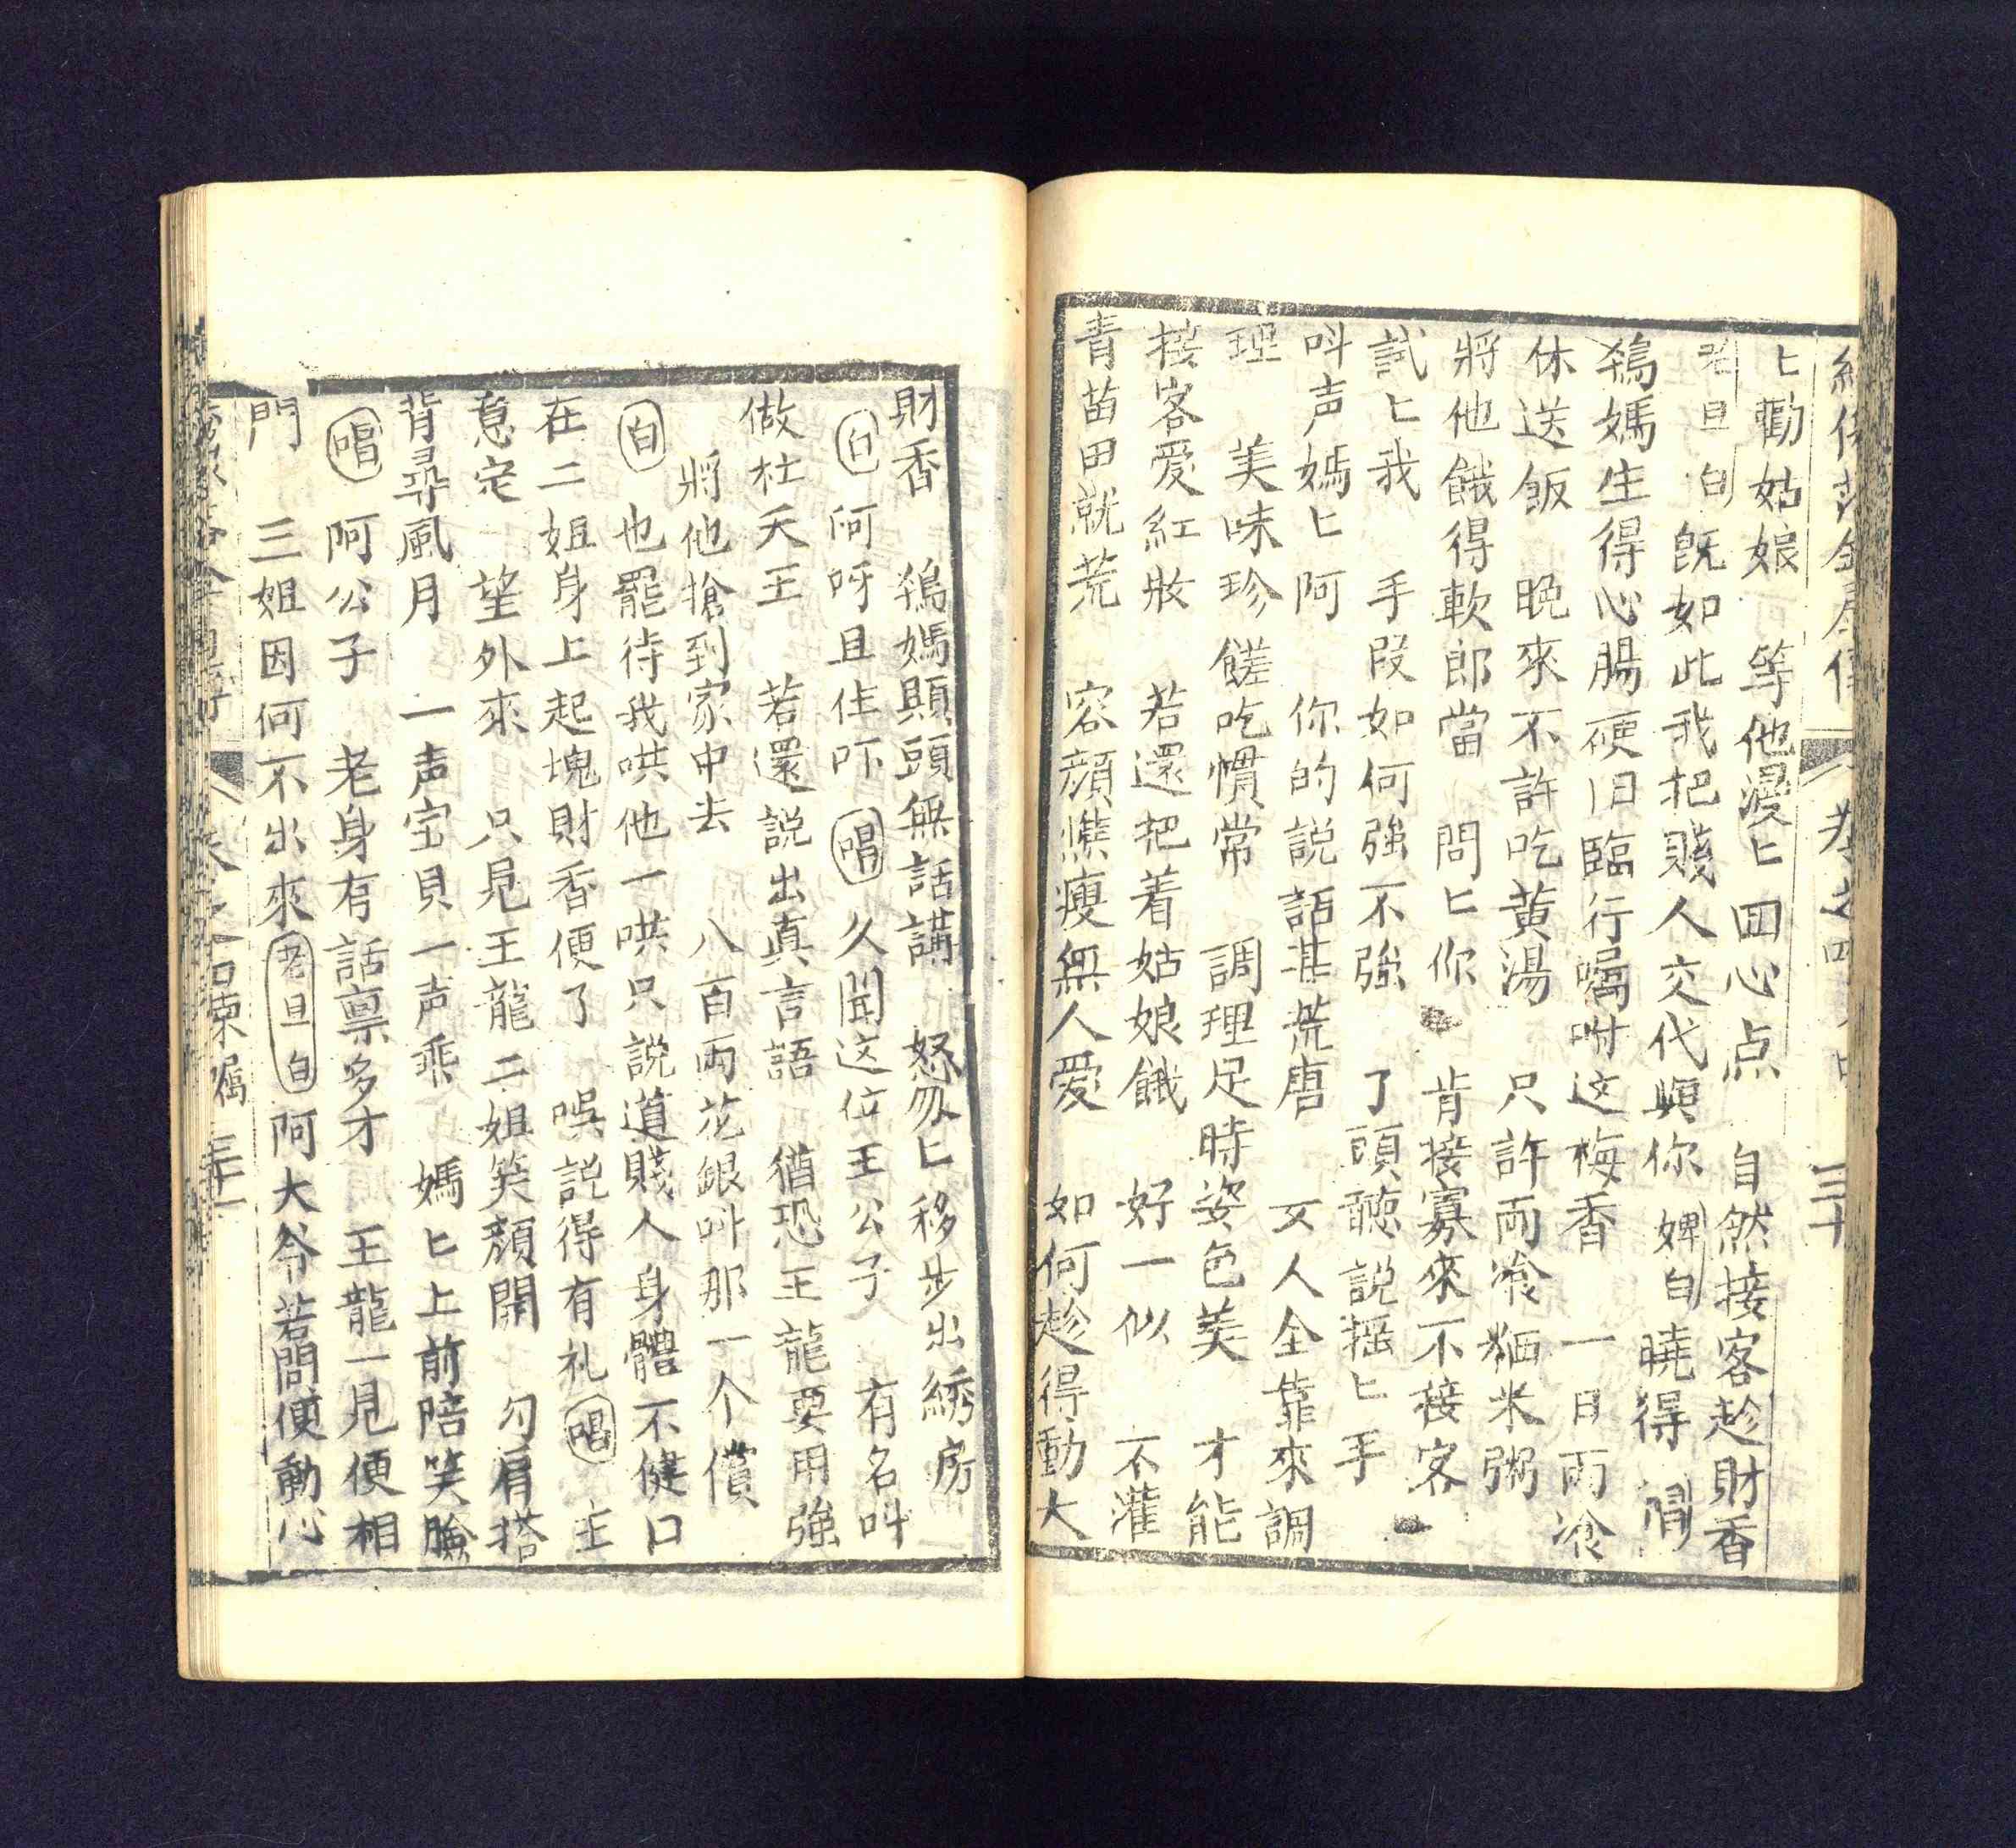 匕勸姑娘 等他漫匕囬心点 自然接客趁財香
老旦白 旣如此我把賤人交代與你 婢白 曉得 唱
鴇媽生得心腸硬 旧臨行囑咐这梅香 一日兩飡
休送飯 晚來不許吃黄湯 只許兩飡粞米粥
將他餓得軟郎當 問匕你 肯接寡來不接客
試匕我 手段如何強不強 了頭聽説揺匕手
呌声媽匕阿 你的説話甚荒唐 女人全靠來調
理 美味珍饈吃慣常 調理足時姿色美 才能
接客愛紅妝 若還把着姑娘餓 好一似 不灌
青苗田就荒 容顔憔瘦無人愛 如何趁得動大
財香 鴇媽顕頭無話講 怒匆匕移步出綉房
白 阿呀且住吓 唱 久聞这位王公子 有名呌
做杜天王 若還説出真言語 猶恐王龍要用強
將他搶到家中去 八百両花銀呌那一个償
白 也罷待我哄他一哄只説道賤人身體不健口
在二姐身上起塊財香便了 唉説得有礼 唱 主
意定 望外來 只見王龍二姐笑顔開 勾肩搭
背尋風月 一声宝貝一声乖 媽匕上前陪笑臉
唱 阿公子 老身有話禀多才 王龍一見便相
問 三姐因何不出來 老旦白 阿大爷若問便動心
卷之
三十
三十一